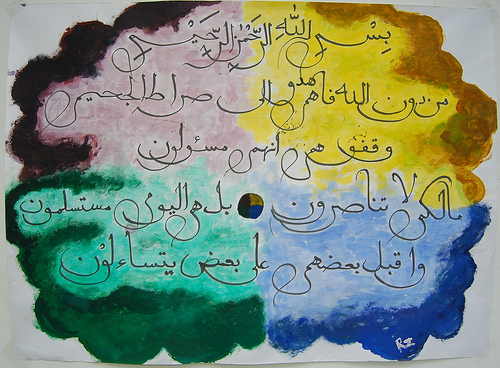 بِسْمِ اللّٰهِ الرَّحْمٰنِ الرَّحِيْمِ
من دون الله فاهدوهم الى صراط الجحيم
وقفوهم انهم مسئولون
مالكم لا تناصرون بل هم اليوم مستسلمون
واقبل بعضهم على بعض يتساءلون
RZ